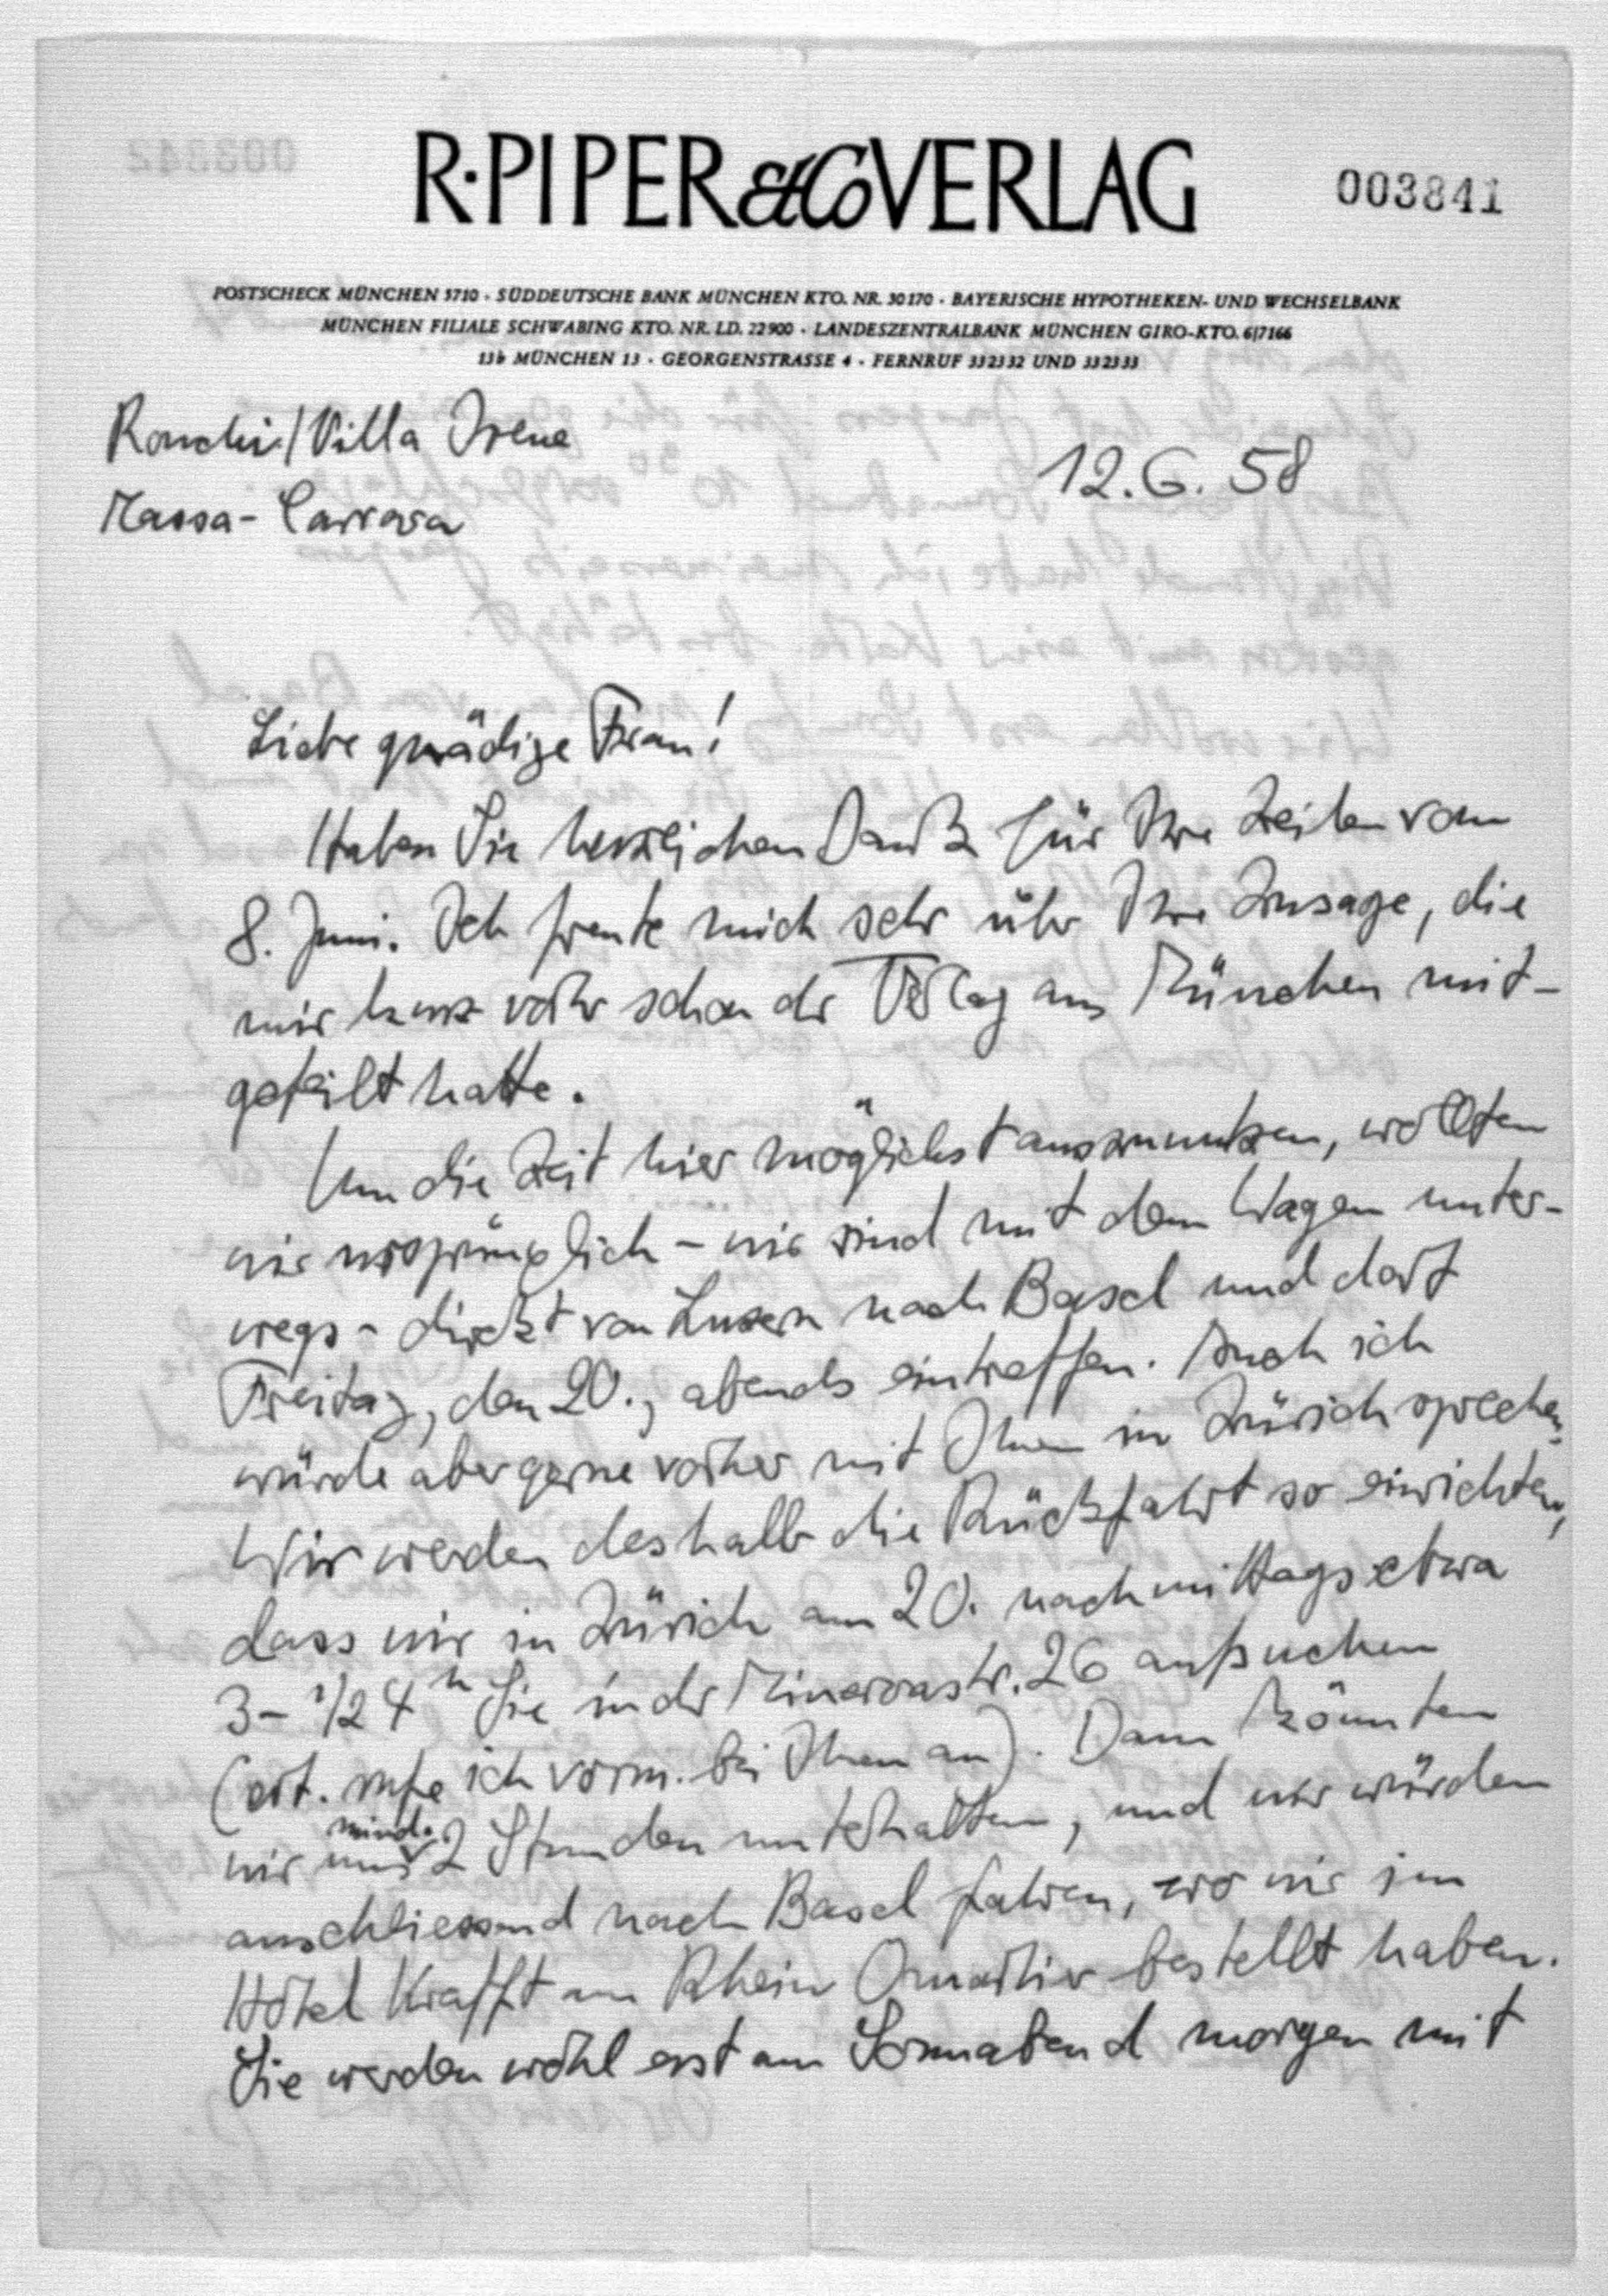 R·PIPER & Co VERLAG
003841
POSTSCHECK MÜNCHEN 5710 · SÜDDEUTSCHE BANK MÜNCHEN KTO. NR. 30170 · BAYERISCHE HYPOTHEKEN- UND WECHSELBANK
MÜNCHEN FILIALE SCHWABING KTO. NR. LD. 22900 · LANDESZENTRALBANK MÜNCHEN GIRO-KTO. 6/7166
13b MÜNCHEN 13 · GEORGENSTRASSE 4 · FERNRUF 332332 UND 332333
Ronchi/Villa Irene
12.6.58
Massa-Carrara
Liebe gnädige Frau!
Haben Sie herzlichen Dank für Ihre Zeilen vom
8. Juni. Ich freute mich sehr über Ihre Zusage, die
mir kurz vorher schon der Verlag aus München mit-
geteilt hatte.
Um die Zeit hier möglichst auszunutzen, wollten
wir ursprünglich - wir sind mit dem Wagen unter-
wegs - direkt von Luzern nach Basel und dort
Freitag, den 20., abends eintreffen. Auch ich
würde aber gerne vorher mit Ihnen in Zürich sprechen.
Wir werden deshalb die Rückfahrt so einrichten,
dass wir in Zürich am 20. nachmittags etwa
3-1/2 4 h Sie in der Minervastr. 26 aufsuchen
(evt. rufe ich vorm. bei Ihnen an). Dann könnten
wir uns mind. 2 Stunden unterhalten, und wir würden
anschliessend nach Basel fahren, wo wir im
Hôtel Krafft am Rhein Quartier bestellt haben.
Sie werden wohl erst am Sonnabend morgen mit